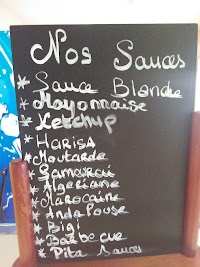 Nos Sauces
* Sauce Blande
* Mayonnaise
* Ketchup
* HARISA
* Moutarde
* Samouraï
* Algeriane
* Marocaine
* Andalouse
* Bigi
* Barbecue
* Pita Sauces